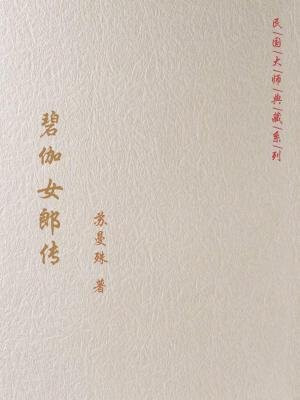 民国大师典藏系列
碧伽女郎传
苏曼殊 著